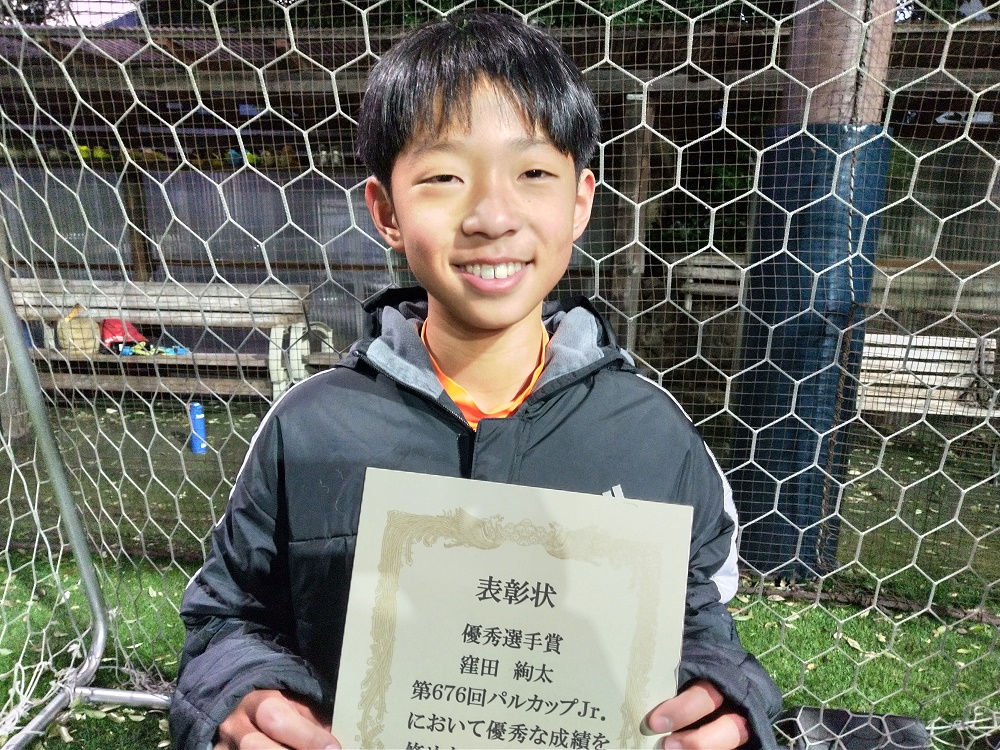 表彰状
優秀選手賞
窪田 絢太
第676回パルカップJr.
において優秀な成績を